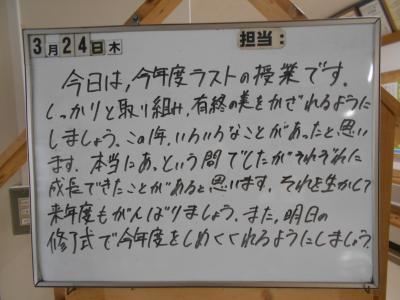 3月24日木 担当:
今日は,今年度ラストの授業です。
しっかりと取り組み,有終の美をかざれるように
しましょう。この1年,いろいろなことがあったと思い
ます。本当にあ,という間でしたがそれぞれに
成長できたことがあると思います。それを生かして
来年度もがんばりましょう。また,明日の
修了式で今年度をしめくくれるようにしましょう。